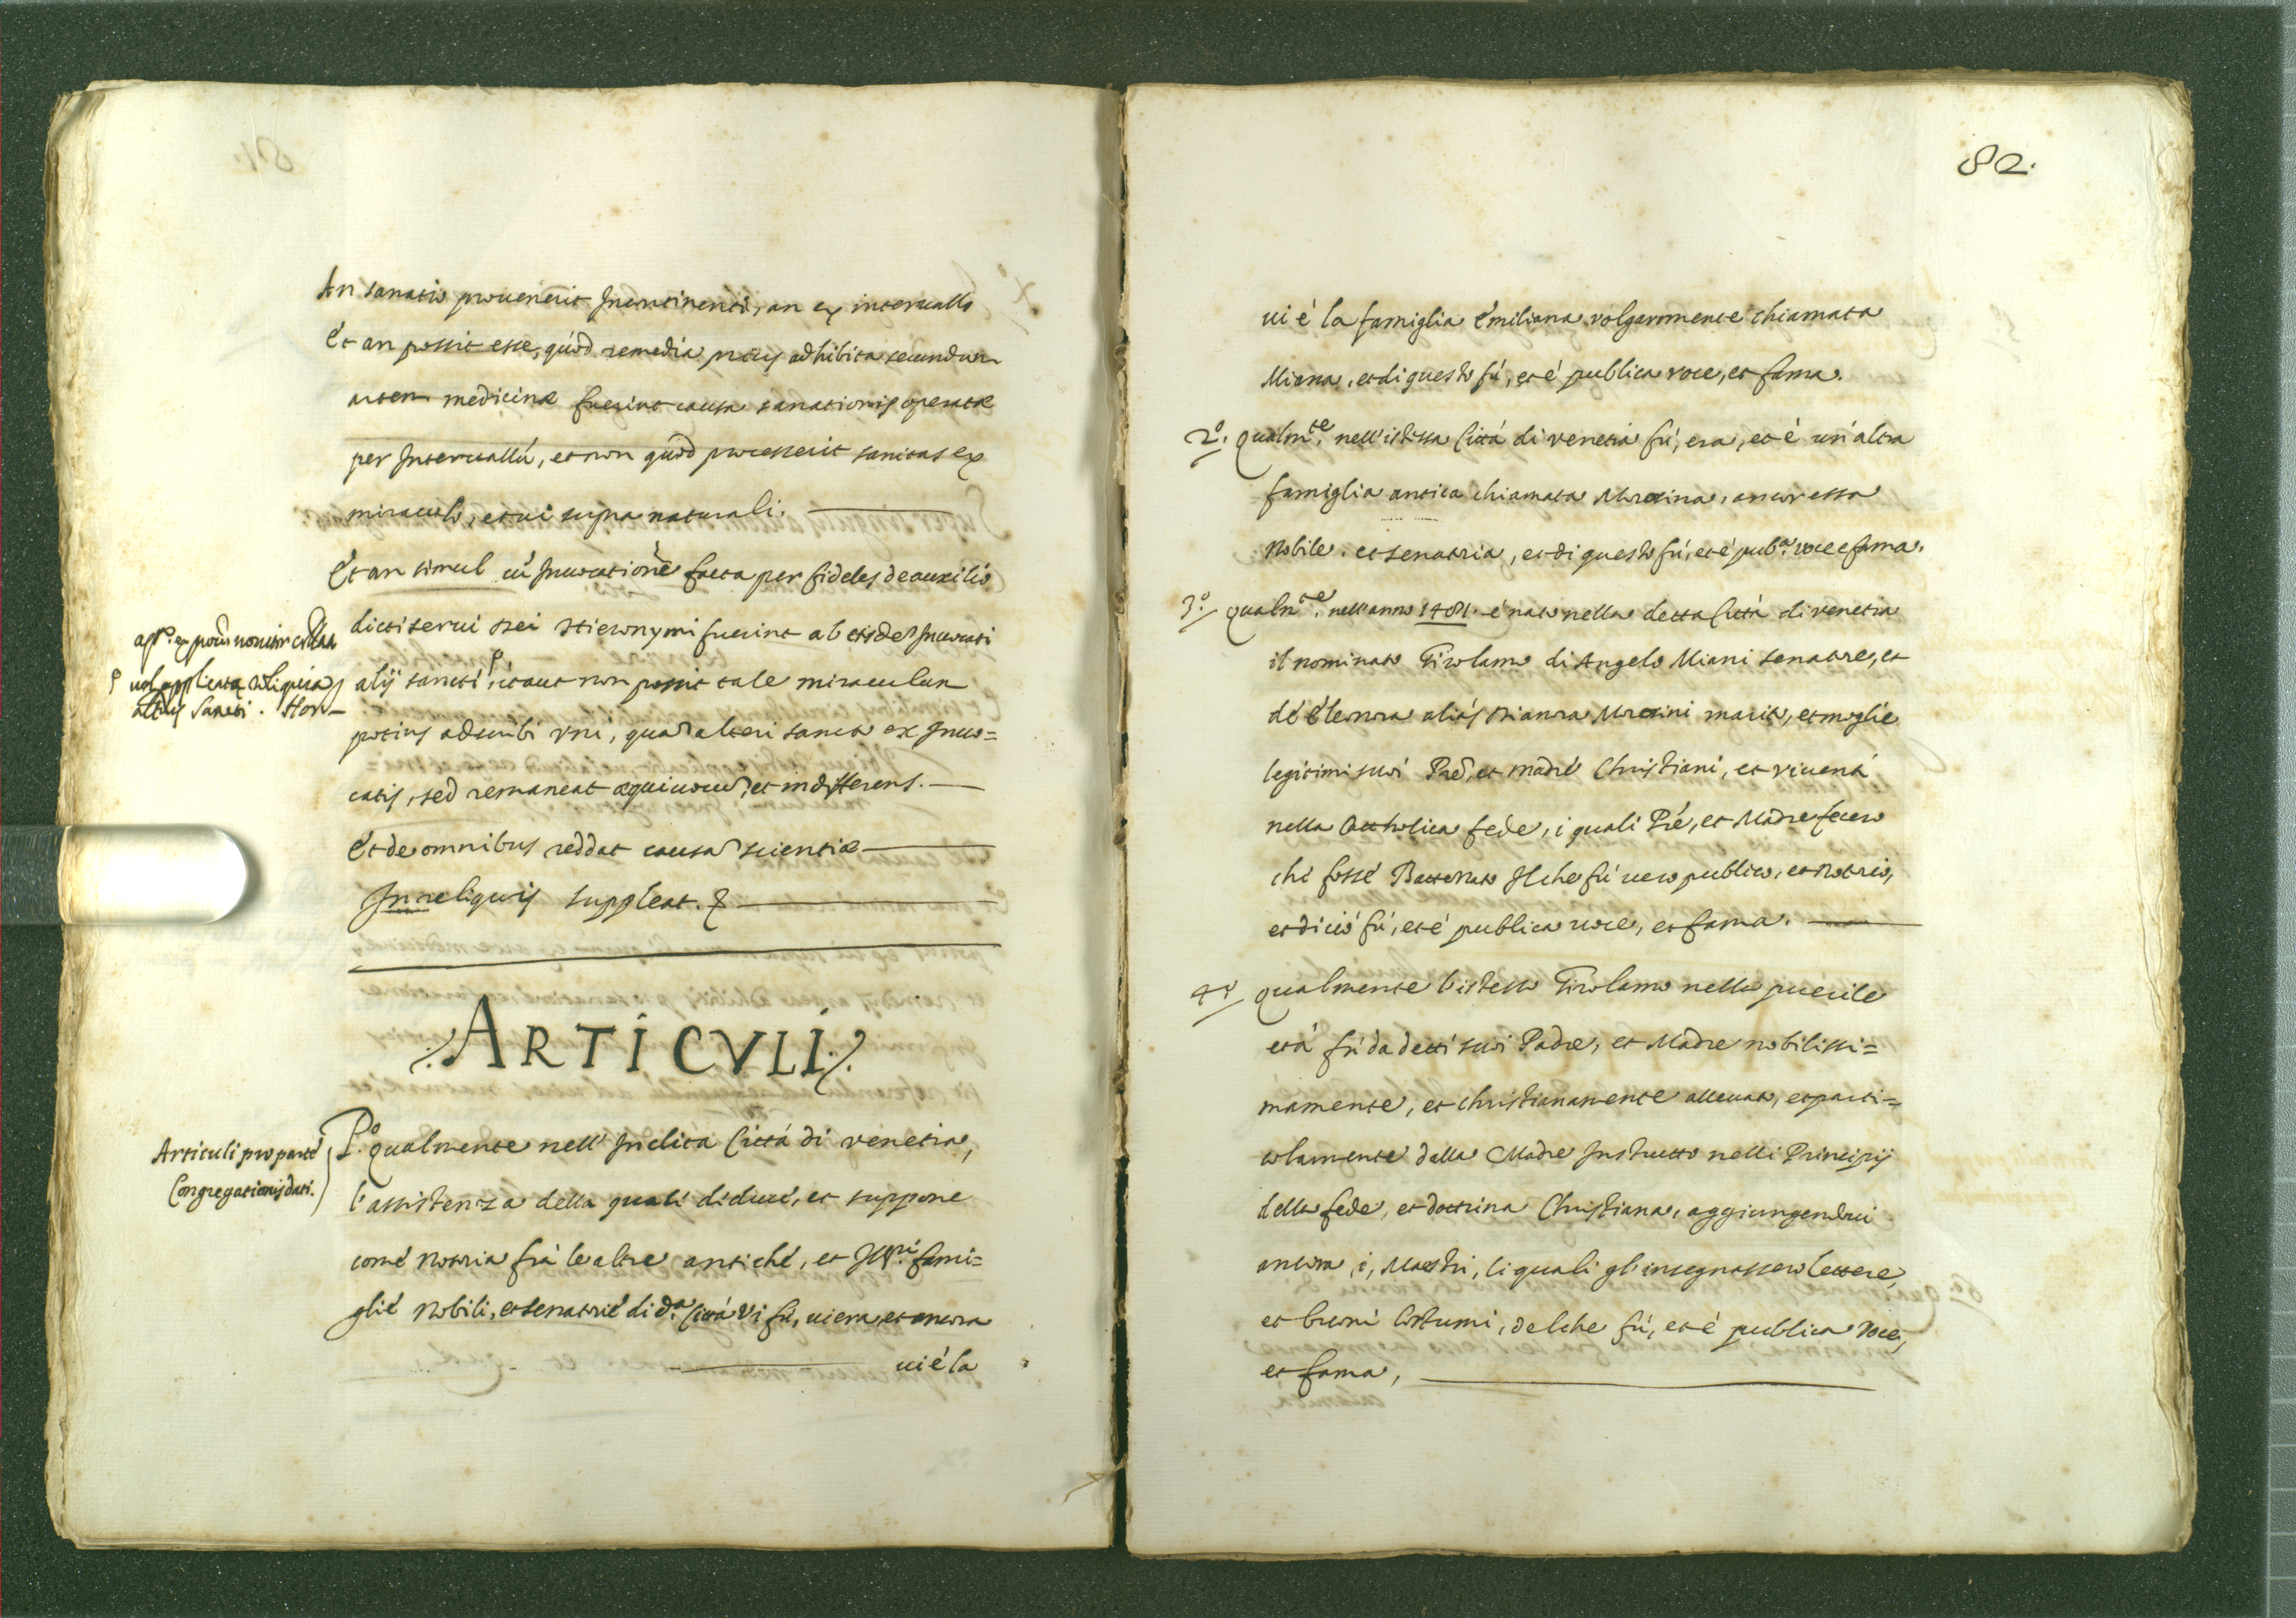 An sanatio prouenerit Incontinenti, an ex interuallo
Et an possit esse, quòd remedia prius adhibita secundum
artem medicinæ fuerint causa sanationis operatæ
per Interuallũ, et non quòd processerit sanitas ex
miraculo, et ui supra naturali.
Et an simul cũ Inuocatione facta per fideles de auxilio
dicti serui Dei Hieronymi fuerint ab eisdẽ Inuocati
alij sancti, itaut non possit tale miraculum
vel applicatæ reliquiæ
alterius Sancti.
potius adscribi vni, quã alteri sancto ex Inuo=
catis, sed remaneat æquiuocũ, et indifferens.
Et de omnibus reddat causã scientiæ
In reliquis suppleat. &
ARTICVLI
Articuli pro parte
Congregationis dati.
P.º qualmente nell' Inclita Città di venetia,
l'assistenza della quale deduce, et suppone
come notoria frà le altre antiche, et Ill.ri fami=
glie Nobili, et senatorie di d.a Città vi fù, ui era, et ancora
ui è la
82.
ui è la famiglia Emiliana volgarmente chiamata
Miana, et di questo fù, et è publica voce, et fama.
2.º qualm.te nell'istessa Città di venetia fù, era, et è un'altra
famiglia antica chiamata Morosina, ancor essa
Nobile. et senatoria, et di questo fù, et è pub.a voce e fama.
3.º qualm.te nell'anno 1481. è nato nella detta Città di venetia
il nominato Girolamo di Angelo Miani senatore, et
de Eleonora aliàs Dianora Morosini marito, et moglie
legitimi suoi Prẽ, et madre Christiani, et viuenti
nella Catholica fede, i quali Prẽ, et Madre fecero
che fosse Battezzato Il che fù uero publico, et notorio,
et di ciò fù, et è publica uoce, et fama.
4.º qualmente l'istesso Girolamo nella puerile
età fù da detti suoi Padre, et Madre nobilissi=
mamente, et christianamente alleuato, et parti=
colarmente dalla Madre Instrutto nelli Principij
della fede, et dottrina Christiana, aggiungendoui
ancora, i, Maestri, li quali gl'insegnassero lettere,
et buoni Costumi, del che fù, et è publica voce,
et fama,